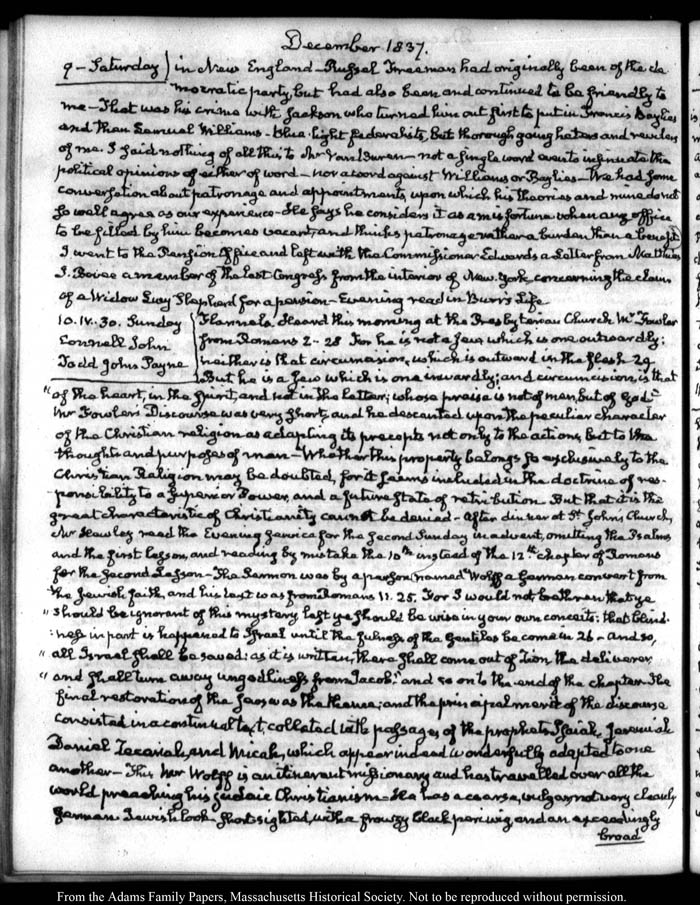 December 1837.
9 - Saturday } in New England - Russel Freeman had originally been of the de
mocratic party, but had also been and continued to be friendly to
me - That was his crime with Jackson who turned him out first to put in Francis Baylies
and then Samuel Williams - blue-light federalists, but thorough going haters and revilers
of me. I said nothing of all this, to Mr Van Buren - not a single word even to insinuate the
political opinions of either of word - nor a word against Williams or Baylies - We had some
conversation about patronage and appointments, upon which his theories and mine do not
so well agree as our experience - He says he considers it as a misfortune when any office
to be filled by him becomes vacant, and thinks patronage rather a burden than a benefit
I went to the Pension Office and left with the Commissioner Edwards a Letter from Matthias
J. Bovee a member of the last Congress from the interior of New-York concerning the claim
of a Widow Lucy Shepherd for a pension - Evening read in Burr's Life
10. IV. 30. Sunday { Flannels. Heard this morning at the Presbyterian Church Mr Fowler
Connell John from Romans 2-28 For he is not a Jew which is one outwardly;
Todd John Payne neither is that circumcision, which is outward in the flesh 29
But he is a Jew which is one inwardly; and circumcision is that
" of the heart, in the Spirit, and not in the letter; whose praise is not of men, but of God."
Mr Fowler's Discourse was very short, and he descanted upon the peculiar character
of the Christian religion as adapting its precepts not only to the actions, but to the
thoughts and purposes of man - Whether this property belongs so exclusively to the
Christian Religion may be doubted, for it seems included in the doctrine of res-
ponsibility to a Superior Power, and a future State of retribution. But that it is the
great characteristic of Christianity cannot be denied - After dinner at St John's Church,
Mr Hawley read the Evening Service for the second Sunday in advent, omitting the Psalms
and the first lesson, and reading by mistake the 10th instead of the 12th chapter of Romans
for the second Lesson - The Sermon was by a person named Wolff a German convert from
the Jewish faith, and his text was from Romans 11. 25. For I would not brethren that ye
" should be ignorant of this mystery lest ye should be wise in your own conceits: that blind-
:ness in part is happened to Israel until the fulness of the Gentiles be come in 26 - and so,
" all Israel shall be saved: as it is written, there shall come out of Zion the deliverer,
" and shall turn away ungodliness from Jacob." and so on to the end of the chapter. The
final restoration of the Jews was the theme; and the principal merit of the discourse
consisted in a continual text, collated with passages of the prophets Isaiah, Jeremiah
Daniel Zecariah, and Micah, which appear indeed wonderfully adapted to one
another - This Mr Wolff is an itinerant missionary and has travelled over all the
world preaching his Judaic Christianism - He has a coarse, vulgar not very cleanly
German Jewish look - short sighted, with a frowzy black periwig, and an exceedingly
broad
From the Adams Family Papers, Massachusetts Historical Society. Not to be reproduced without permission.